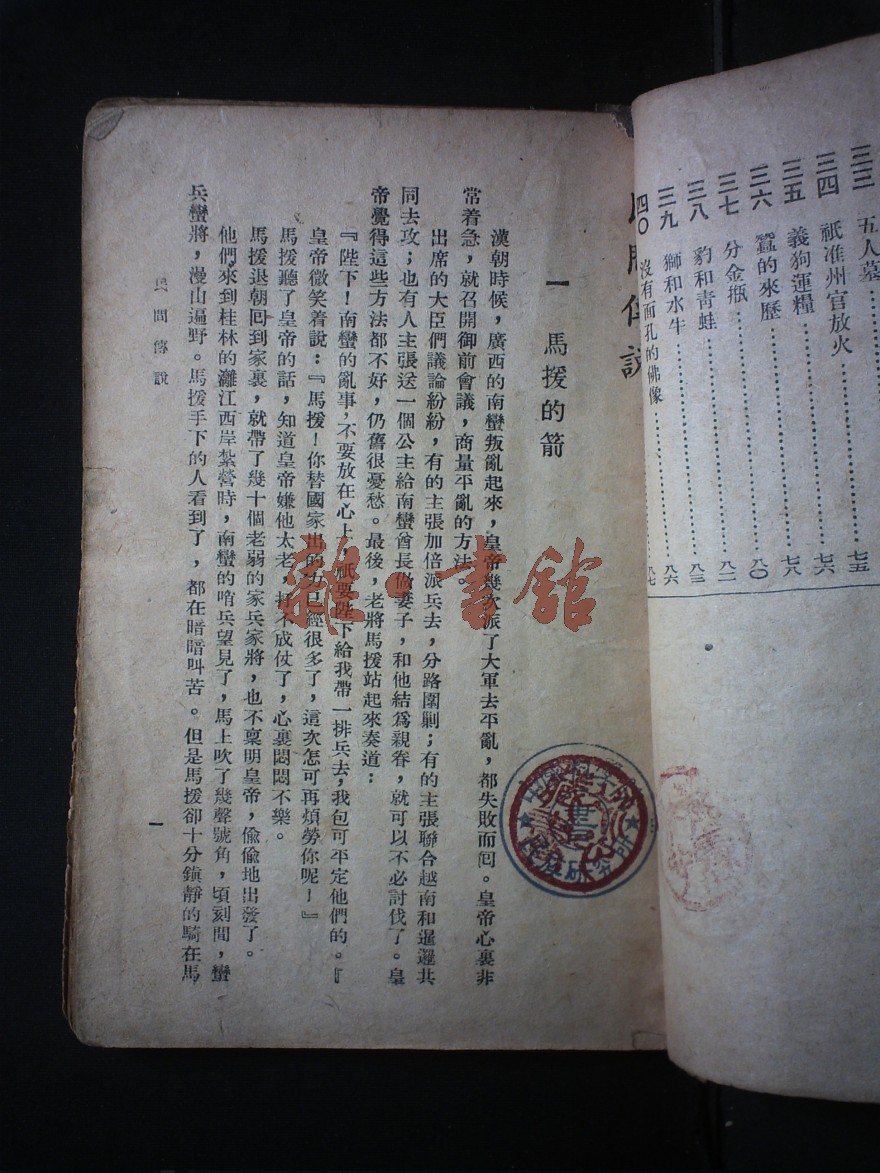 三三 五人墓……七五
三四 祇准州官放火……七六
三五 義狗運糧……七八
三六 蠶的來歷……八〇
三七 分金瓶……八一
三八 豹和青蛙……八三
三九 獅和水牛……八六
四〇 沒有面孔的佛像……八七
一 馬援的箭
漢朝時候，廣西的南蠻叛亂起來，皇帝幾次派了大軍去平亂，都失敗而囘。皇帝心裏非
常着急，就召開御前會議，商量平亂的方法。
出席的大臣們議論紛紛，有的主張加倍派兵去，分路圍剿；有的主張聯合越南和暹邏共
同去攻；也有人主張送一個公主給南蠻酋長做妻子，和他結爲親眷，就可以不必討伐了。皇
帝覺得這些方法都不好，仍舊很憂愁。最後，老將馬援站起來奏道：
『陛下！南蠻的亂事，不要放在心上，祇要陛下給我帶一排兵去，我包可平定他們的。』
皇帝微笑着說：『馬援！你替國家出的力已經很多了，這次怎可再煩勞你呢！』
馬援聽了皇帝的話，知道皇帝嫌他太老，打不成仗了，心裏悶悶不樂。
馬援退朝回到家裏，就帶了幾十個老弱的家兵家將，也不稟明皇帝，偷偷地出發了。
他們來到桂林的灕江西岸紮營時，南蠻的哨兵望見了，馬上吹了幾聲號角，頃刻間，蠻
兵蠻將，漫山遍野。馬援手下的人看到了，都在暗暗叫苦。但是馬援卻十分鎮靜的騎在馬
民間傳說
一
雜·書館